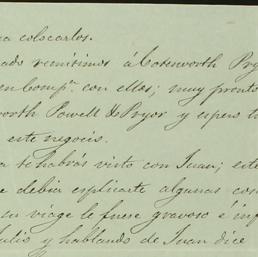 a colocarlos.
ado remitimos á Cotesworth Pry
en Compª. con ellos; muy pronto
orth Powell & Pryor y espero t
este negocio.
a te habrás visto con Juan; este
e debia esplicarte algunas co
su viage le fuese gravoso é in
Julio y hablando de Juan dice